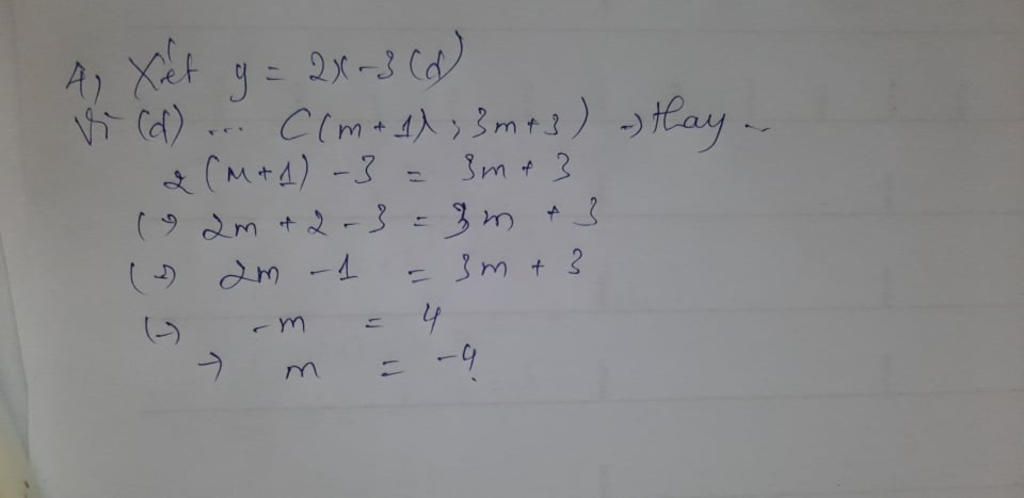 A, Xét y = 2x - 3 (d)
Vì (d) ... C(m + 1 ; 3m + 3) → Thay ..
2(m + 1) - 3 = 3m + 3
(→ 2m + 2 - 3 = 3m + 3
(→) 2m - 1 = 3m + 3
(→) - m = 4
→ m = -4